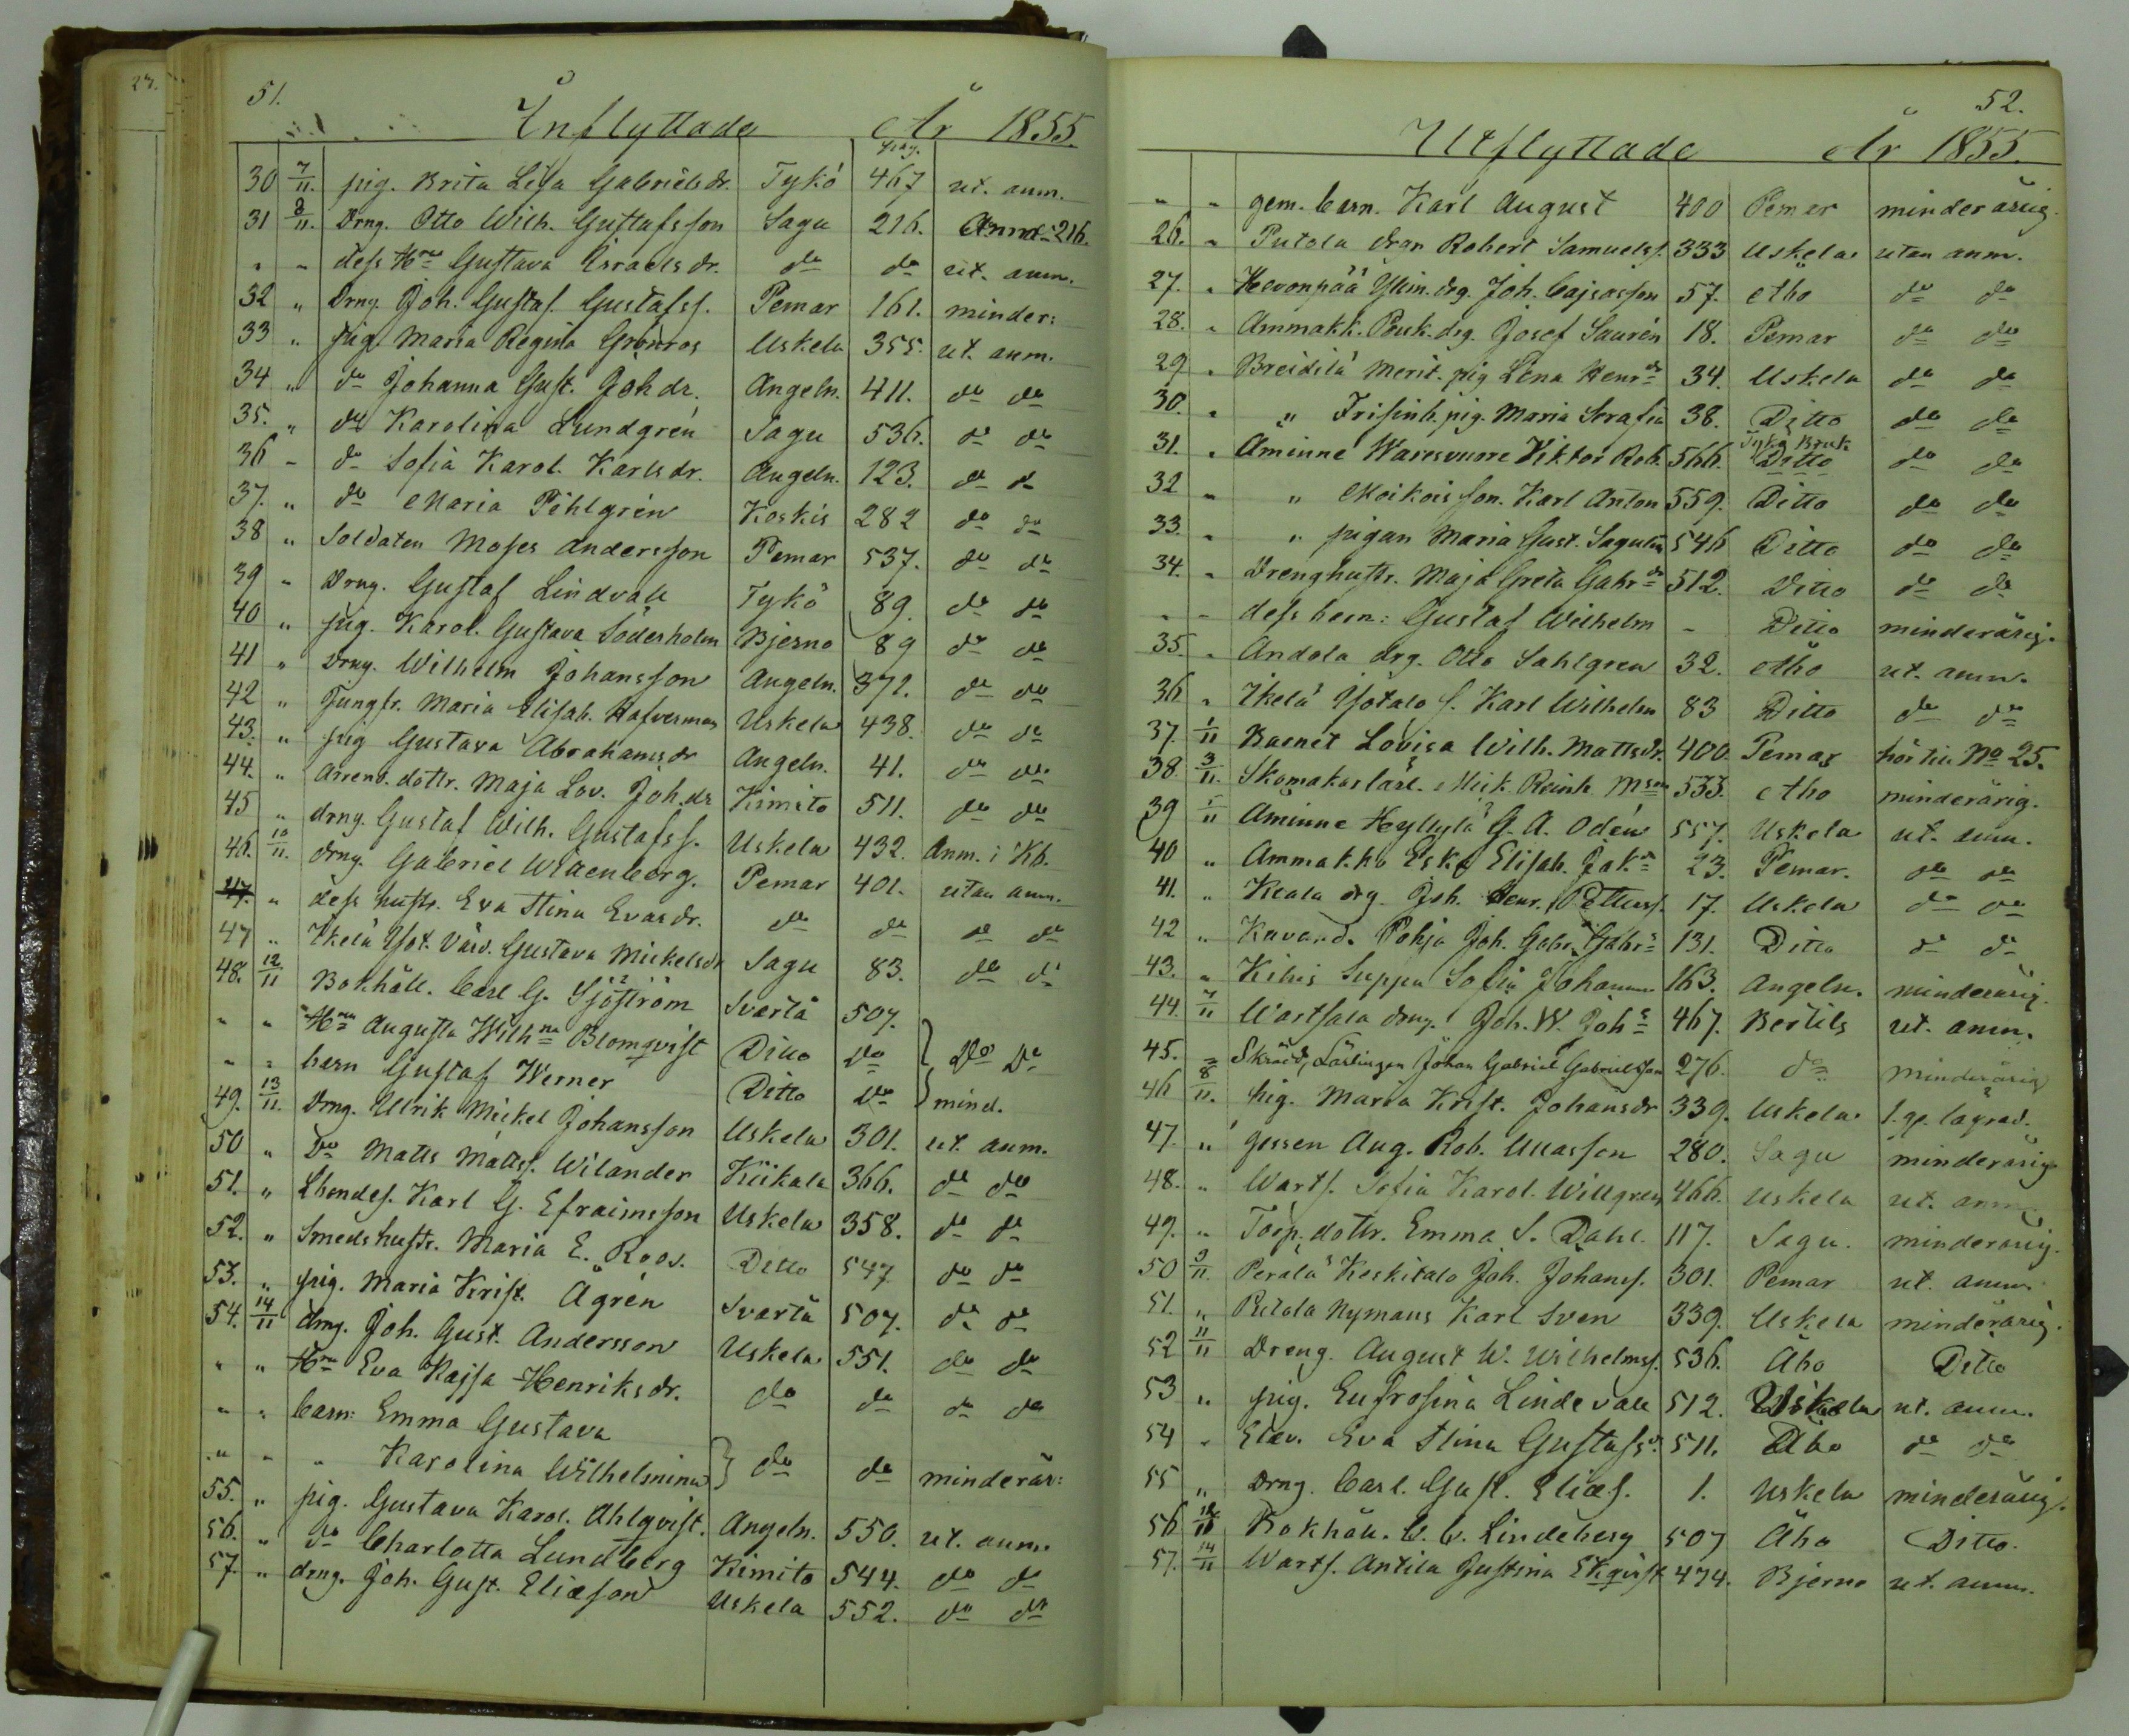 27.
51.
Inflyttade År 1855.
pag.
30 7/11. pig. Brita Lisa Gabrielsdr. Tykö 467 ut. anm.
31 8/11. Drng. Otto Wilh. Gustafsson Sagu 216. Anm. 216.
" " dess Hru Gustava Israelsdr. do do ut. anm.
32 " Drng. Joh. Gustaf Gustafss. Pemar 161. minder:
33 " pig. Maria Regina Grönros Uskela 355. ut. anm.
34 " do Johanna Gust. Johdr. Angeln. 411. do do
35. " do Karolina Lundgrén Sagu 536. do do
36 " do Sofia Karol. Karlsdr. Angeln. 123. do do
37. " do Maria Pihlgrén Koskis 282 do do
38 " Soldaten Moses Andersson Pemar 537. do do
39 " Drng. Gustaf Lindvall Tykö 89. do do
40 " pig. Karol. Gustava Söderholm Bjerno 89 do do
41 " Drng. Wilhelm Johansson Angeln. 372. do do
42 " Jungfr. Maria Elisab. Hafverman Uskela 438. do do
43. " pig Gustava Abrahamsdr Angeln. 41. do do
44. " Arrend. dottr. Maja Lov. Joh.dr Kimito 511. do do
45 " drng. Gustaf Wilh. Gustafss. Uskela 432. Anm. i Kb.
46. 10/11. drng. Gabriel Wittenberg. Pemar 401. utan anm.
47. " dess hustr. Eva Stina Evasdr. do do do do
47 " Ikelä Yot. Värd. Gustava Mickelsdr Sagu 83. do do
48. 12/11 Bokhåll. Carl G. Sjöström Svartå 507.
" " Hru Augusta Wilhna Blomqvist Ditto do } Do Do
" " barn Gustaf Werner Ditto Do } mind.
49. 13/11. Drng. Ulrik Mickel Johansson Uskela 301. ut. anm.
50 " Do Matts Mattss. Wilander Kiikala 366. do do
51. " Karl G. Efraimsson Uskela 358. do do
52. " Smedshustr. Maria E. Roos. Ditto 547 do do
53. " pig. Maria Krist. Ågrén Svartå 507. do do
54. 14/11 drng. Joh. Gust. Andersson Uskela 551. do do
" " Hru Eva Kajsa Henriksdr. do do do do
" " barn: Emma Gustava
" " " Karolina Wilhelmina } do do minderår:
55. " pig. Gustava Karol. Ahlqvist. Angeln. 550. ut. anm.
56. " do Charlotta Lundberg Kimito 544. do do
57. " drng. Joh. Gust. Eliæson Uskela 552. do do
52.
Utflyttade År 1855.
" " gem. barn. Karl August 400 Pemar minderårig.
26. " Putola drgn Robert Samuelss. 333 Uskela utan anm.
27. " Hevonpää Ylim. drg. Joh. Cajsasson 57. Åbo do do
28. " Ammakk. Pouk. drg. Josef Saurén 18. Pemar do do
29 " Breidilä Merit. pig Lena Henrdr 34. Uskela do do
30. " " pig. Maria Serafia 38. Ditto do do
31. " Åminne Waresvuore Viktor Rob. 566. Tykö Bruk Ditto do do
32 " " Moikois son. Karl Anton 559. Ditto do do
33. " " pigan Maria Gust. Sagulin 546 Ditto do do
34. " Drenghustr. Maja Greta Gabrdr 512. Ditto do do
" " dess barn: Gustaf Wilhelm - Ditto minderårig.
35. " Andola drg. Otto Sahlgren 32. Åbo ut. anm.
36 " Ikelä Yotalo s. Karl Wilhelm 83 Ditto do do
37. 1/11 Barnet Lovisa Wilh. Mattsdr. 400. Pemar hör till No 25.
38. 3/11. Skomakarlärl. Mick. Reinh. Msson 533. Åbo minderårig.
39 5/11 Åminne Hyllylä G. A. Odén 557. Uskela ut. anm.
40 " Ammakko Esko Elisab. Jakdr 23. Pemar. do do
41. " Keala drg. Joh. Henr. Petterss. 17. Uskela do do
42 " Kavand. Pohja Joh. Gabr. Gabrs 131. Ditto do do
43. " Kihis Suppa Sofia Johanna 163. Angeln. minderårig.
44. 7/11 Wartsala drng. Joh. W. Johs 467. Bertils ut. anm.
45. " Skrädd, Lärlingen Johan Gabriel Gabrielsson 276. do minderårig
46 8/11. pig. Maria Krist. Johansdr 339. Uskela 1. g. lagvad.
47. " gossen Aug. Rob. Ullasson 280. Sagu minderårig
48. " Warts. Sofia Karol. Willgren 466. Uskela ut. anm.
49. " Torp. dottr. Emma S. Dahl. 117. Sagu. minderårig.
50 9/11. Perälä Keskitalo Joh. Johanss. 301. Pemar ut. anm.
51. " Putola Nymans Karl Sven 339. Uskela minderårig.
52 11/11 Dreng. August W. Wilhelmss. 536. Åbo Ditto
53 " pig. Eufrosina Lindevall 512. Uskela ut. anm.
54 " Elev. Eva Stina Gustafsdr. 511. Åbo do do
55 " Drng. Carl. Gust. Eliæs. 1. Uskela minderårig.
56 12/11 Bokhåll. C. C. Lindeberg 507 Åbo Ditto.
57. 14/11 Warts. Antila Justina Ekqvist 474. Bjerno ut. anm.